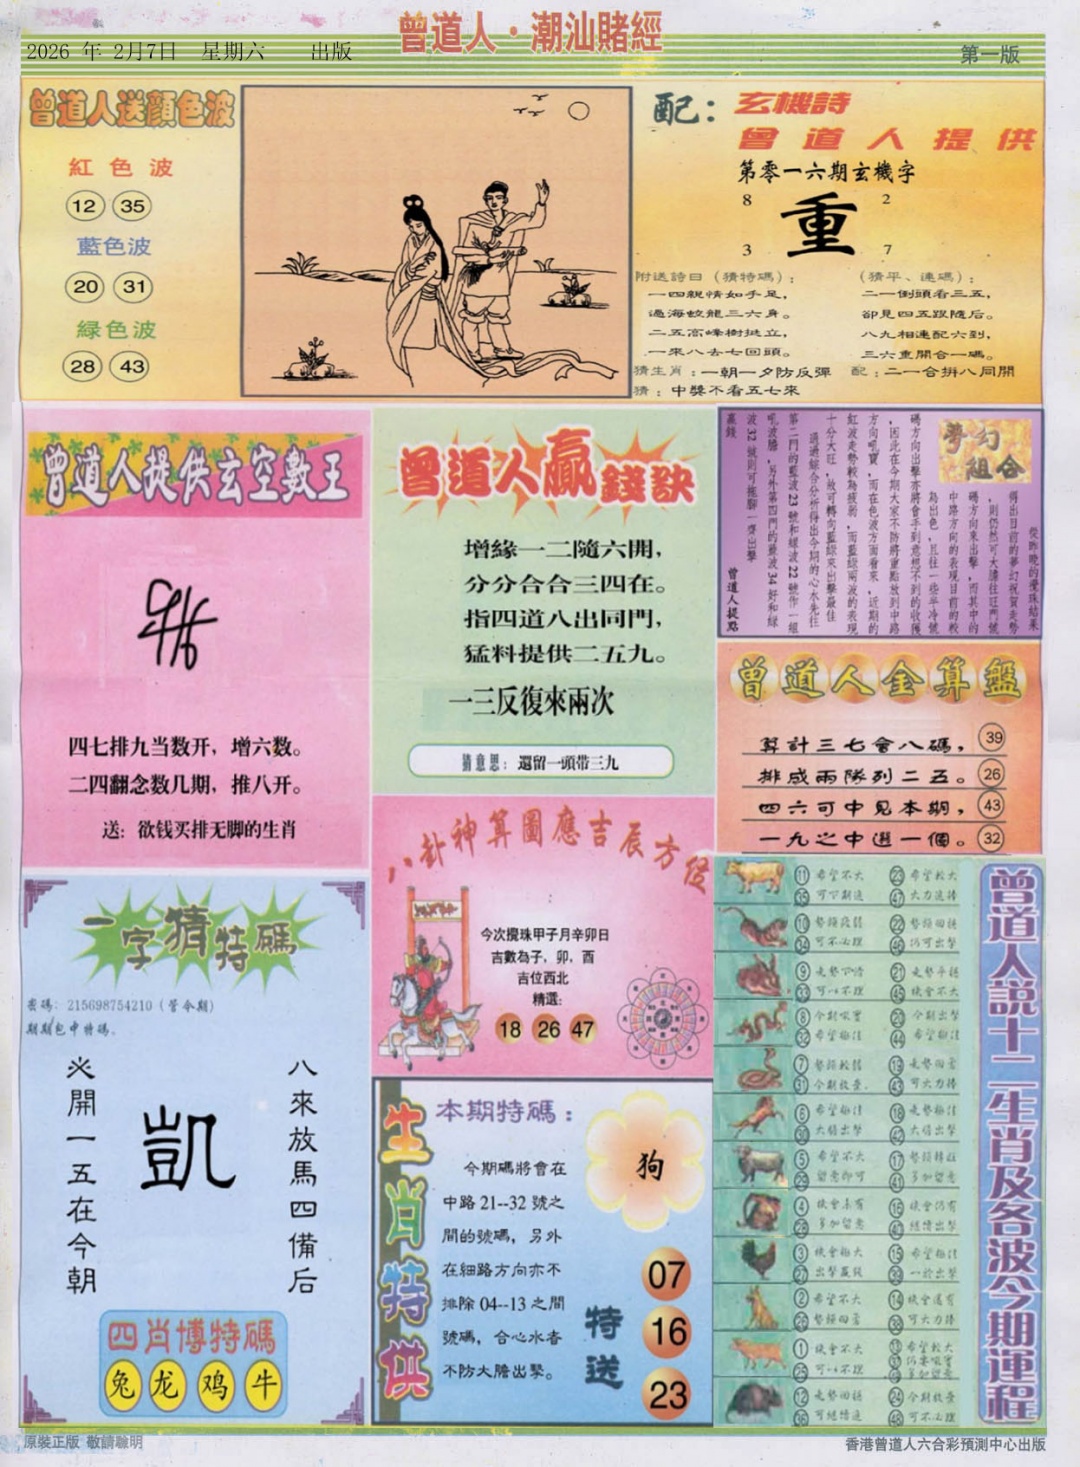 曾道人·潮汕賭經
2026 年 2月7日 星期六 出版
第一版
曾道人送顏色波
紅色波
12 35
藍色波
20 31
緑色波
28 43
配：玄機詩
曾道人提供
第零一六期玄機字
8 2
重
3 7
附送詩曰（猜特碼）：
一四親情如手足，
過海蛟龍三六身。
二五高峰樹挺立，
一來八去七回頭。
猜生肖：一朝一夕防反彈
猜：中獎不看五七來
（猜平、連碼）：
二一倒頭看三五，
卻見四五跟隨后。
八九相連配六到，
三六重開合一碼。
配：二一合拼八同開
曾道人提供玄空數王
四七排九当数开，增六数。
二四翻念数几期，推八开。
送：欲钱买排无脚的生肖
曾道人贏錢訣
增緣一二隨六開，
分分合合三四在。
指四道八出同門，
猛料提供二五九。
一三反復來兩次
猜意思：還留一頭带三九
夢幻組合
從昨晚的攪珠結果
得出目前的夢幻祝賀走勢
，則仍然可大膽往旺門號
碼方向來出擊，而其中的
中路方向的表現目前的較
為出色，且往一些半冷號
碼方向出擊亦將會手到意想不到的收獲
，因此在今期大家不防將重點放到中路
方向吼寶，而在色波方面看來，近期的
紅波走勢較為疲弱，而藍綠兩波的表現
十分大旺，故可轉向藍綠來出擊最佳
通過綜合分析得出今期的心水先往
第二門的藍波23號和綠波22號作一組
吼波膽，另外第四門的藍波34好和綠
波32號則可拖腳一齊出擊
贏錢
曾道人提點
曾道人金算盤
算計三七會八碼， 39
排成兩隊列二五。 26
四六可中見本期， 43
一九之中選一個。 32
一字猜特碼
密碼：215698754210（管令期）
期期包中特碼.
八來放馬四備后
凱
※開一五在今朝
四肖博特碼
兔 龙 鸡 牛
八卦神算圖應吉辰方位
今次攪珠甲子月辛卯日
吉數為子，卯，酉
吉位西北
精選：
18 26 47
生肖特供
本期特碼：
今期碼將會在
中路21--32 號之
間的號碼，另外
在細路方向亦不
排除04--13 之間
號碼，合心水者
不防大膽出擊。
狗
特送
07
16
23
曾道人説十二生肖及各波今期運程
11 希望不大 23 希望較大
35 可下期追 47 大力追捧
10 勢頭段弱 22 勢頭回穩
34 可不必理 46 仍可出擊
9 21 走勢平穩
33 可一不理 45 機會不大
8 今期吼寶 20 今期出擊
32 希望極佳 44 希望極佳
7 勢頭較弱 19 走勢回常
31 今期放棄. 43 可大力捧
6 希望極佳 18 走勢極佳
30 大膽出擊 42 大膽出擊
5 希望不大 17 勢頭轉旺
29 留意即可 41 多加留意
4 機會未有 16 機會仍有
28 多加留意 40 繼續出擊
3 機會極大 15 希望極佳
27 出擊嚴放 39 一於出擊
2 希望不大 14 機會還有
26 勢頭回常 38 可大力捧
1 機會不大 13 希望較大
25 可一不理
12 走勢回穩 24 今期放棄
36 可繼續追 48 可不必理
原裝正版 敬請聰明
香港曾道人六合彩預測中心出版